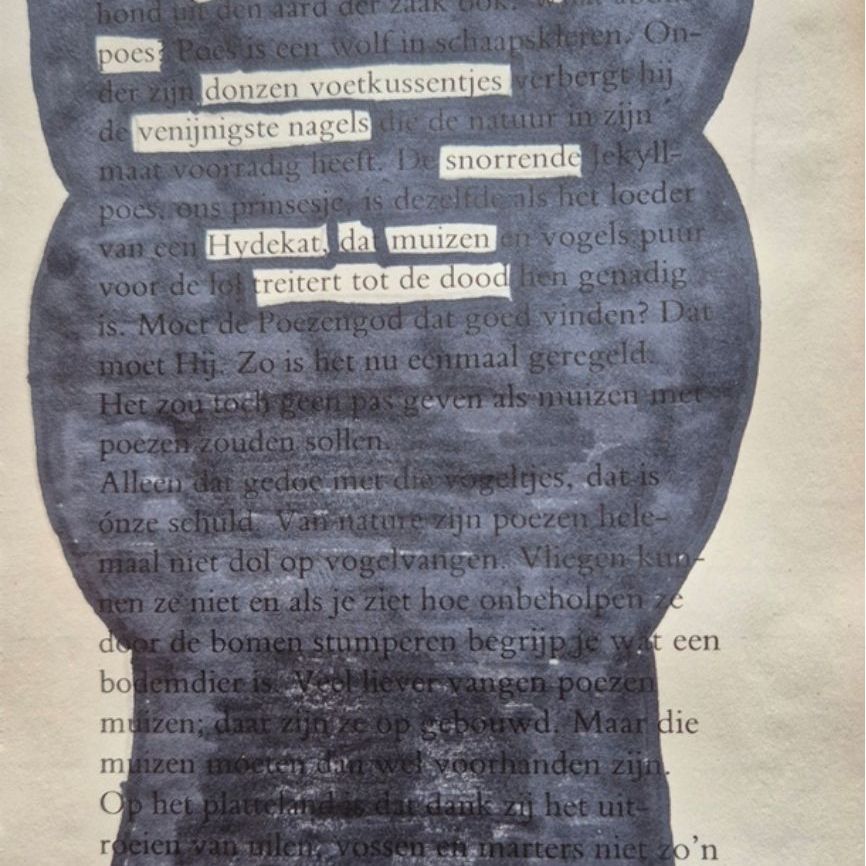 hond uit den aard der zaak ook.
poes? Poes is een wolf in schaapskleren. On-
der zijn donzen voetkussentjes verbergt hij
de venijnigste nagels die de natuur in zijn
maat voorradig heeft. De snorrende Jekyll-
poes, ons prinsesje, is dezelfde als het loeder
van een Hydekat, dat muizen en vogels puur
voor de lol treitert tot de dood hen genadig
is. Moet de Poezengod dat goed vinden? Dat
moet Hij. Zo is het nu eenmaal geregeld.
Het zou toch geen pas geven als muizen met
poezen zouden sollen.
Alleen dat gedoe met die vogeltjes, dat is
ónze schuld. Van nature zijn poezen hele-
maal niet dol op vogelvangen. Vliegen kun-
nen ze niet en als je ziet hoe onbeholpen ze
door de bomen stumperen begrijp je wat een
bodemdier is. Veel liever vangen poezen
muizen; daar zijn ze op gebouwd. Maar die
muizen móeten dan wel voorhanden zijn.
Op het platteland is dat dank zij het uit-
roeien van uilen, vossen en marters niet zo'n